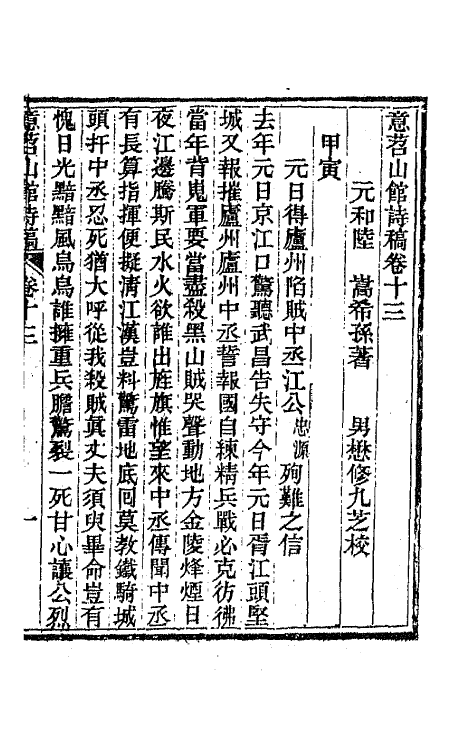 意苕山館詩稿卷十三
元和陸 嵩希孫著 男懋修九芝校
甲寅
元日得廬州陷賊中丞江公忠源殉難之信
去年元日京江口驚聽武昌告失守今年元日胥江頭堅
城又報摧廬州廬州中丞誓報國自練精兵戰必克彷彿
當年背嵬軍要當盡殺黑山賊哭聲動地方金陵烽煙日
夜江邊騰斯民水火欲誰出旌旗惟望來中丞傳聞中丞
有長算指揮便擬淸江漢豈料驚雷地底回莫教鐵騎城
頭扞中丞忍死猶大呼從我殺賊眞丈夫須臾畢命豈有
愧日光黯黯風烏烏誰擁重兵膽驚裂一死甘心讓公烈
意苕山館詩稿 卷十三 一